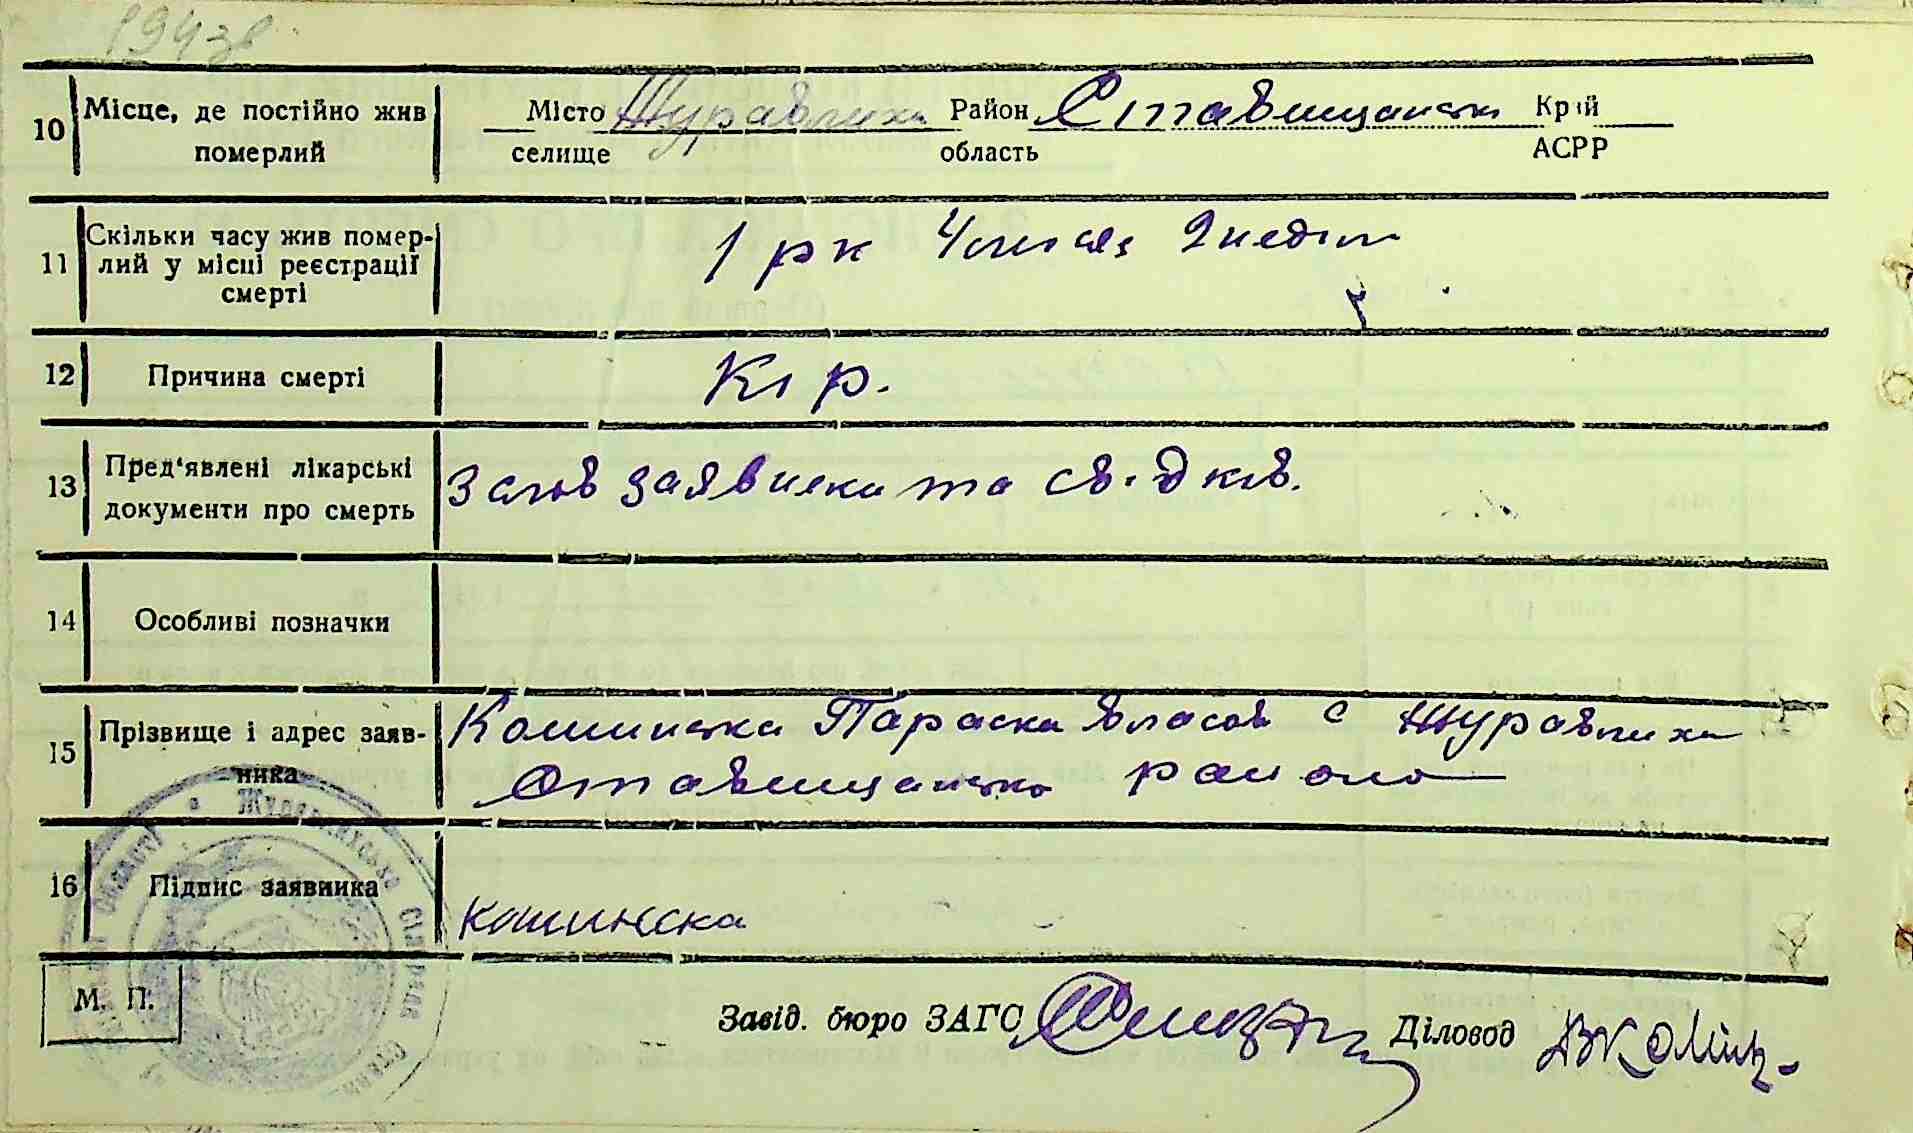 10 Місце, де постійно жив Місто Журавлиха Район Ставищанськ Край
померлий селище область АСРР
11 Скільки часу жив помер-
лий у місці реєстрації
смерті
1 рк 4 міся 2 неділ
12 Причина смерті Кір.
13 Пред'явлені лікарські
документи про смерть
З слов заявника та свідків.
14 Особливі позначки
15 Прізвище і адрес заяв-
ника
Коминська Параска Власов с Журавлиха
Ставищансько району
16 Підпис заявника
Коминска
М. П.
Завід. бюро ЗАГС Діловод